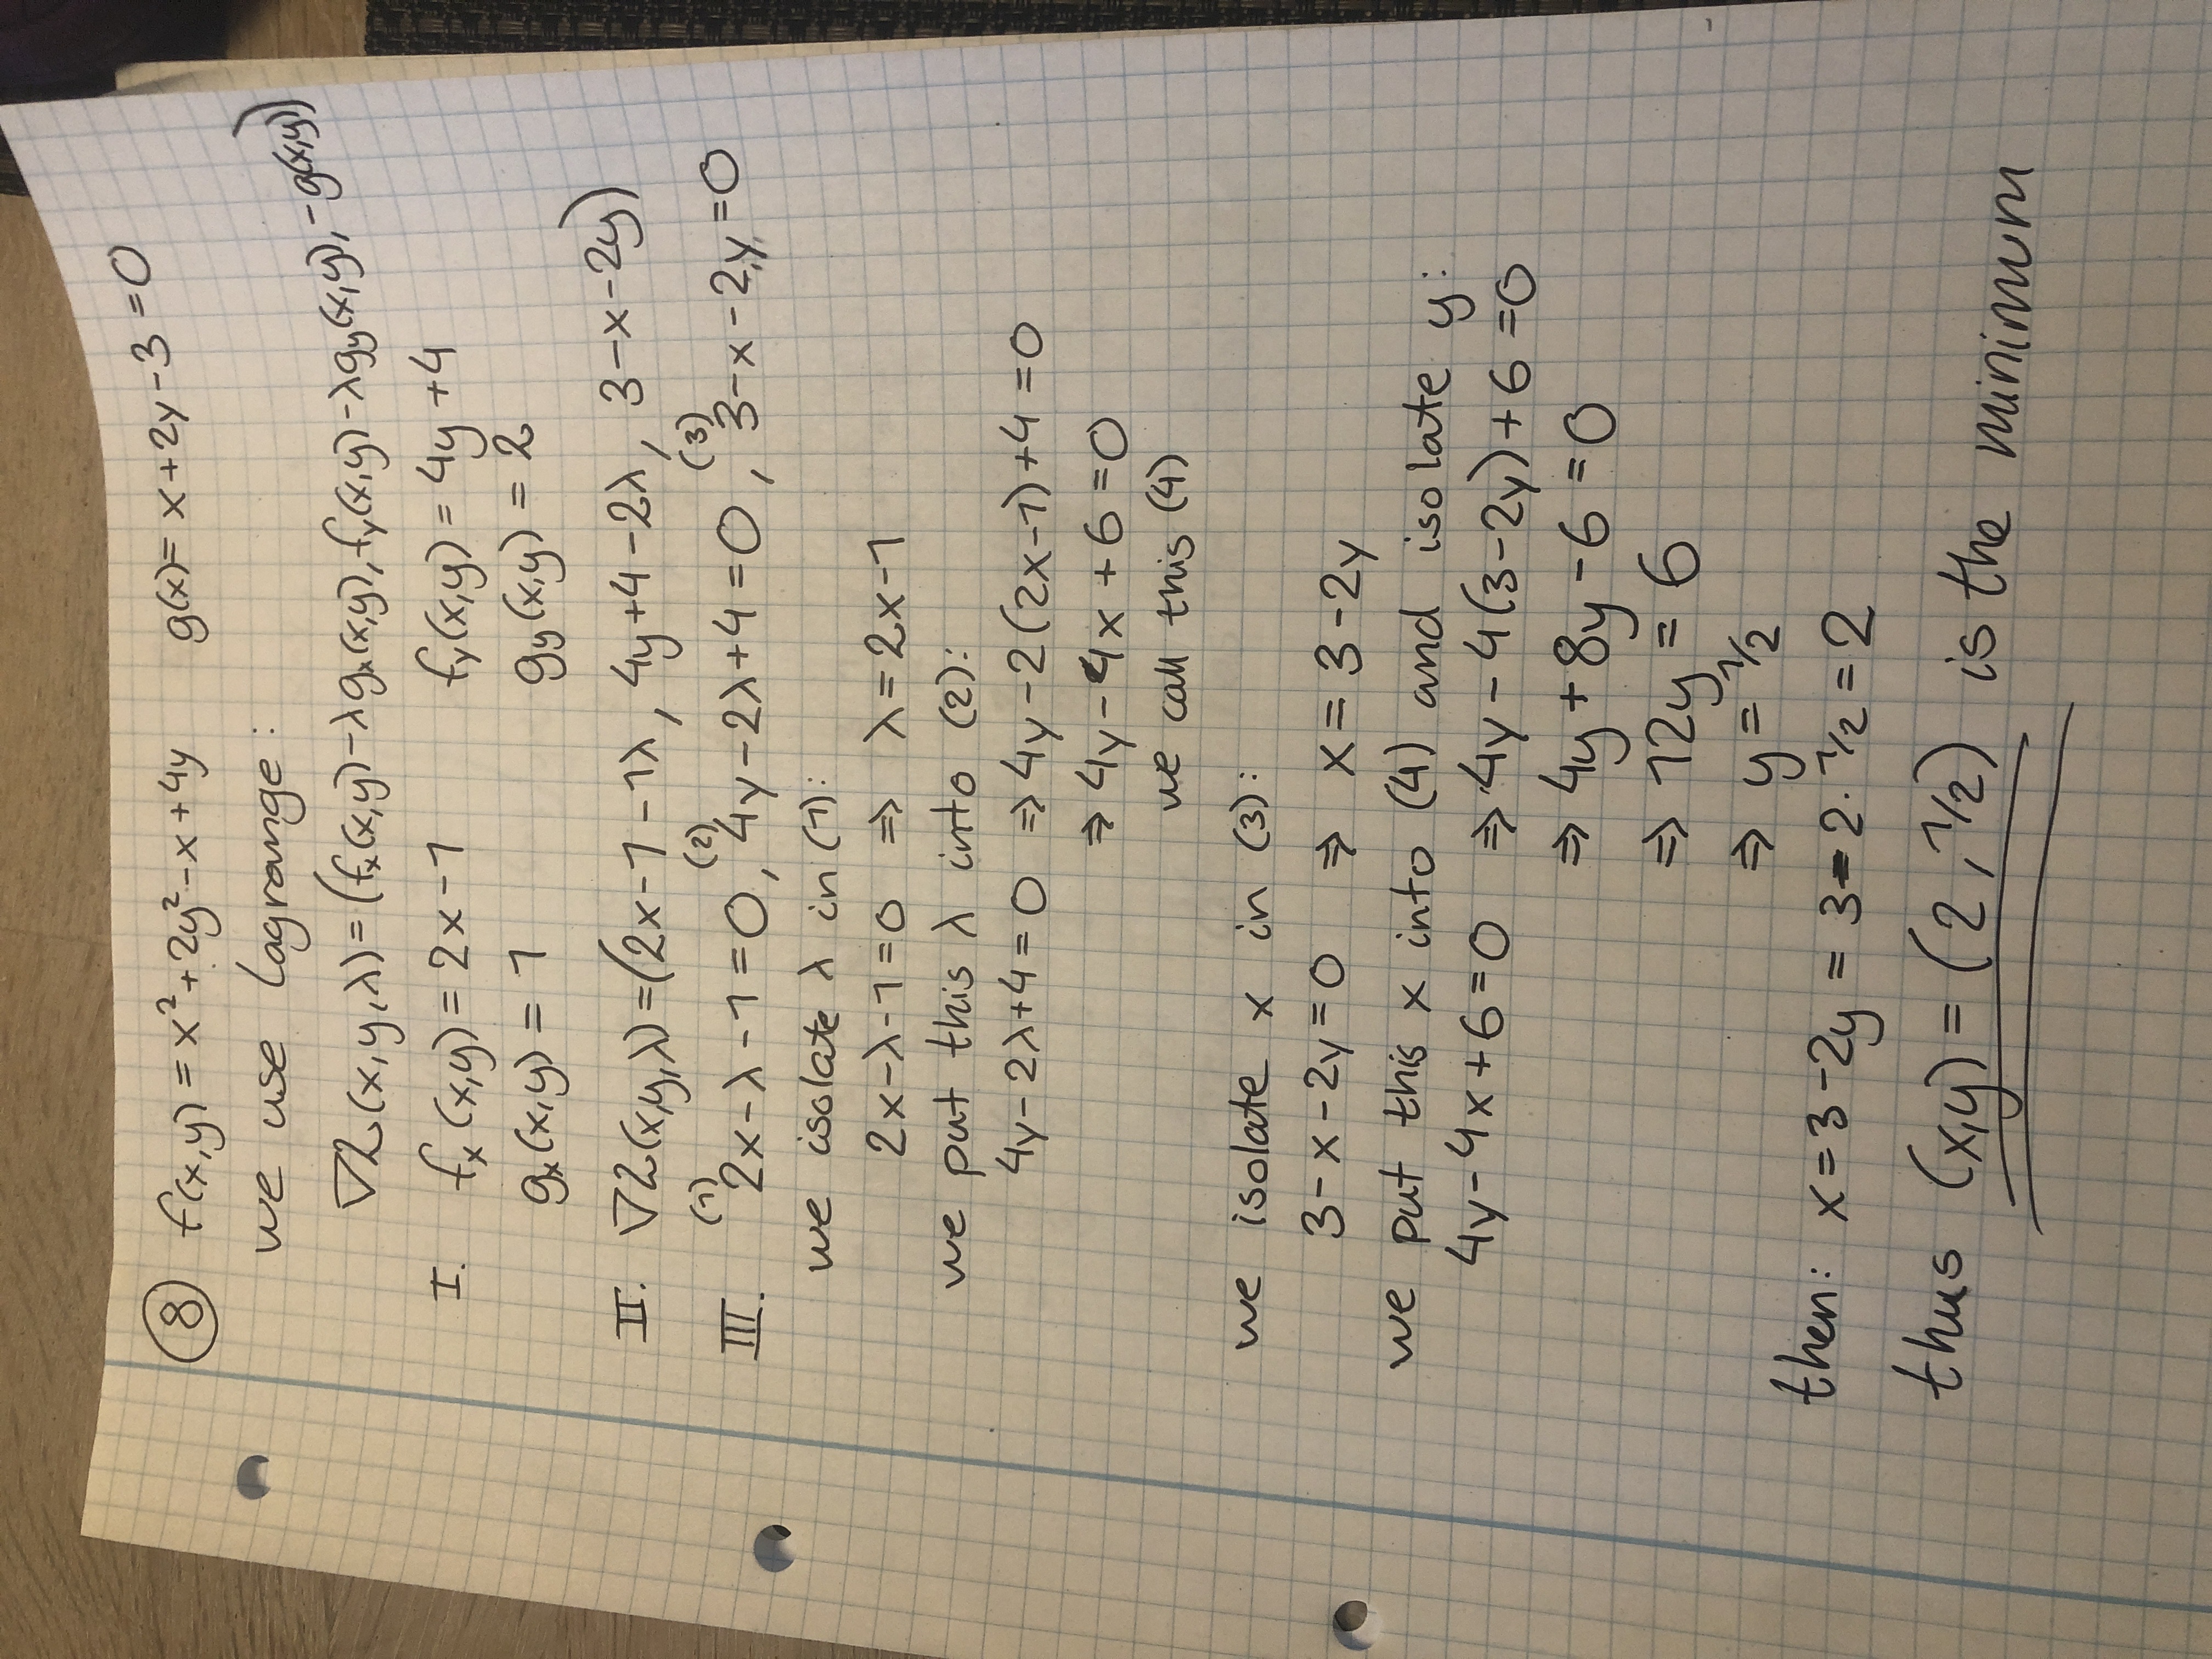 ⑧ f(x,y) = x² + 2y² - x + 4y g(x) = x + 2y - 3 = 0
we use Lagrange:
∇L(x,y,λ) = (fx(x,y) - λgx(x,y), fy(x,y) - λgy(x,y), -g(x,y))
I. fx(x,y) = 2x - 1 fy(x,y) = 4y + 4
gx(x,y) = 1 gy(x,y) = 2
II. ∇L(x,y,λ) = (2x - 1 - 1λ, 4y + 4 - 2λ, 3 - x - 2y)
III. (1) 2x - λ - 1 = 0, (2) 4y - 2λ + 4 = 0, (3) 3 - x - 2y = 0
we isolate λ in (1):
2x - λ - 1 = 0 ⇒ λ = 2x - 1
we put this λ into (2):
4y - 2λ + 4 = 0 ⇒ 4y - 2(2x - 1) + 4 = 0
⇒ 4y - 4x + 6 = 0
we call this (4)
we isolate x in (3):
3 - x - 2y = 0 ⇒ x = 3 - 2y
we put this x into (4) and isolate y:
4y - 4x + 6 = 0 ⇒ 4y - 4(3 - 2y) + 6 = 0
⇒ 4y + 8y - 6 = 0
⇒ 12y = 6
⇒ y = 1/2
then: x = 3 - 2y = 3 - 2 · 1/2 = 2
thus (x,y) = (2, 1/2) is the minimum